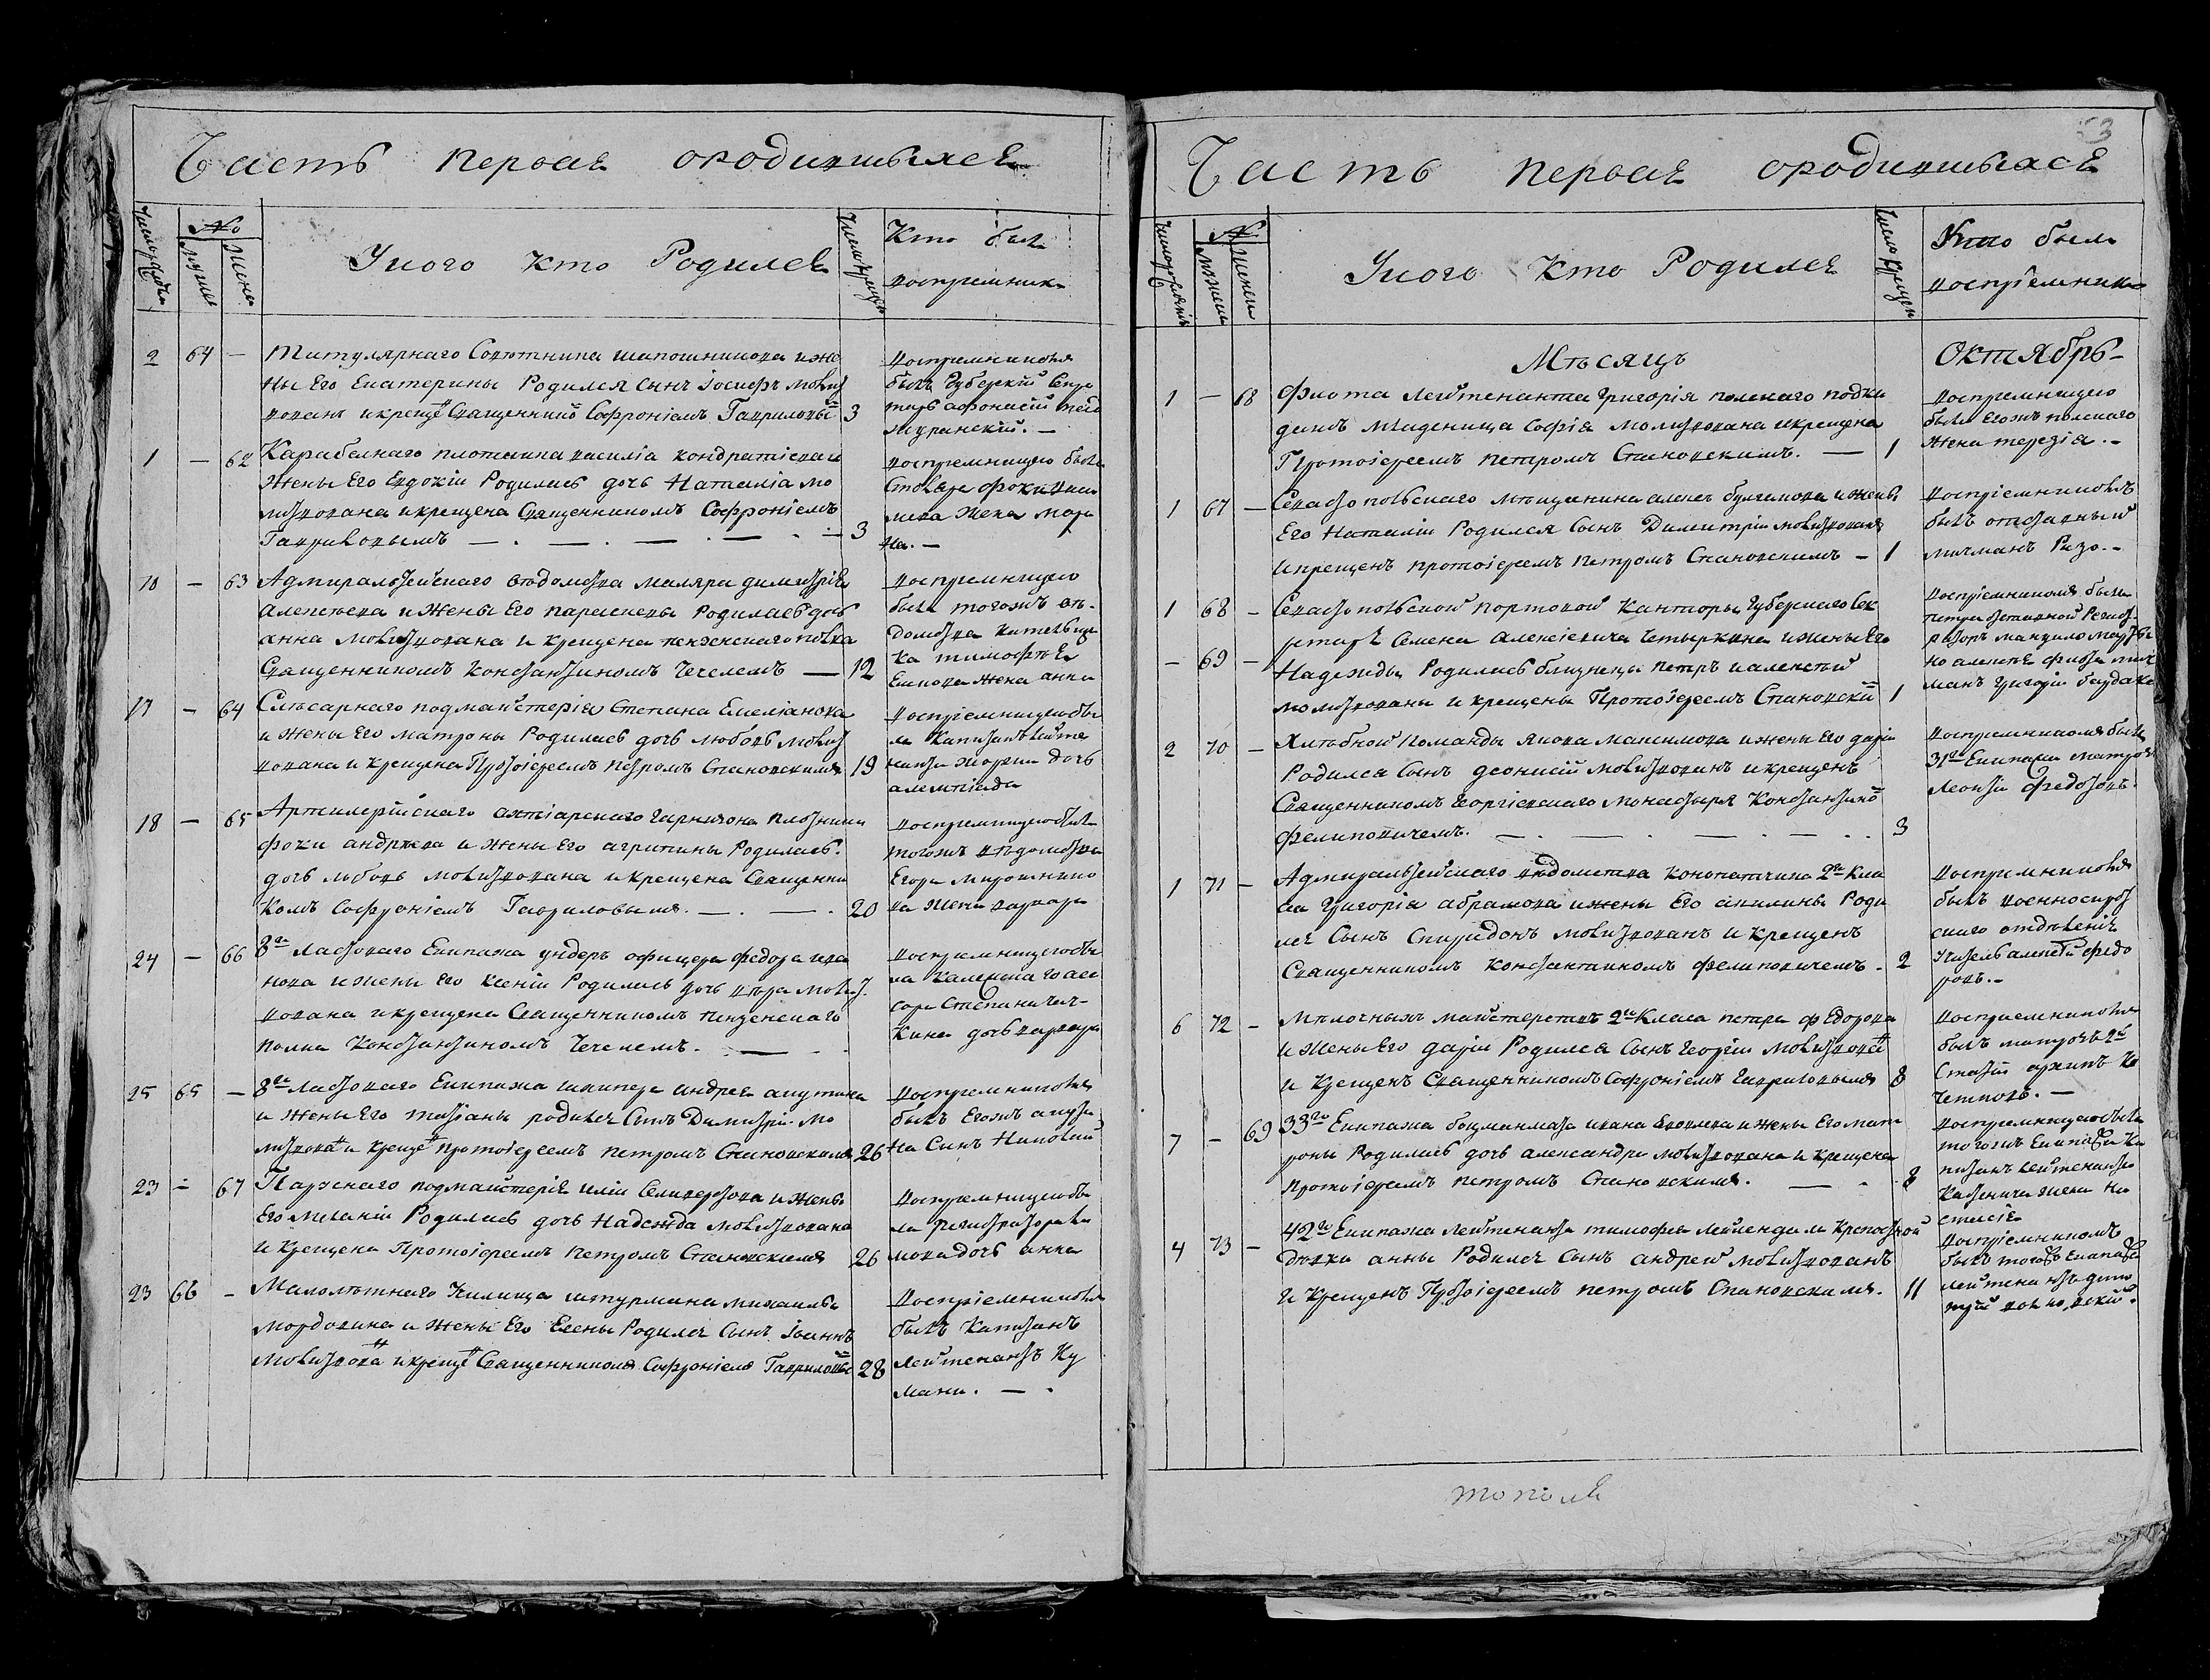 Часть первая ородившыхся
Число рожден
№
Мужска
Женска
Укого кто Родился
Число крещен
Кто был
воспріемник
2 64 – Титулярнаго Советника шапошникова и же
ны Его Екатерины Родился сынъ Іосифъ молит
вованъ и крещенъ Священникомъ Софроніемъ Гавриловы 3
воспремникомъ
былъ Губерскій Секре
тарь афонасій
журанскій. –
1 – 62 Карабелнаго плотника василіа кондратіева и
Жены Его Евдокіи Родилась дочь Наталіа мо
литвована и крещена Священникомъ Софроніемъ
Гавриловымъ — . — . — . — . – 3
воспремницею была
Столяра
жена мар
на. –
10 – 63 Адмиралтейскаго вѣдомства маляра димитріѧ
алексеева и жены Его параскевы Родилась дочь
анна молитвована и крещена пензенскаго полка
Священникомъ Константиномъ Чечелемъ — 12
воспремницею
была тогожъ вѣ-
домства
ка тимофѣѧ
жена анна
17 – 64 Слѣсарнаго подмайстеріѧ Степана Емеліанова
и жены Его матроны Родилась дочь любовь молит
вована и крещена Протоіереемъ петромъ Становскимъ 19
воспріемницею бы
ла Капитанълейте
нанта дочь
алемпіада
18 – 65 Артилерійскаго ахтіарскаго гарнизона плотника
фоки андреева и жены Его агрипины Родилась.
дочь любовь молитвована и крещена Священни
комъ Софроніемъ Гавриловымъ. — . — . 20
воспремницею была
тогожъ вѣдомства
Егора Мирошнико
ва жена варвара
24 – 66 8го Ластоваго Екипажа ундеръ офицера федора ива
нова и жены Его ксеніи Родилась дочь вера молит
вована и крещена Священникомъ пензенскаго
полка Константиномъ Чечелемъ. — .
воспремницею бы
ла Калежскаго асе
сора Степана Чел-
кина дочь варвара
25 65 – 8го Ластоваго Екипажа шкипера андрея
и жены Его татіаны родился Сынъ Димитрій мо
литвованъ и крещенъ протоіереемъ петромъ Становскимъ 26
воспремникомъ
былъ Егожъ
на Сынъ Николай
23 – 67 Парускаго подмайстеріѧ иліи Селиверстова и жены
Его меланіи Родилась дочь Надежда молитвована
и крещена Протоіереемъ петромъ Становскимъ 26
воспремницею бы
ла Регистратора
мова дочь анна
23 66 – Малолѣтнаго Училища штурмана михаила
мордовина и жены Его Елены Родился Сынъ Іоаннъ
молитвованъ и крещенъ Священникомъ Софроніемъ Гавриловы 28
воспріемникомъ
былъ Капитанъ
лейтенантъ Ку
мани. — .
53
Часть первая ородившыхася
Число рожден
№
Мужска
Женска
Укого кто Родился
Число крещен
Кто былъ
воспріемник
Мѣсяцъ Октябрь
1 – 68 Флота лейтенанта Григорія полскаго подки
дышъ младеница Софія молитвована и крещена
Протоіереемъ петромъ Становскимъ. — 1
воспремницею
была Егожъ полскаго
жена терезія. –
1 67 – Севастополскаго мѣщанина алексея и жены
Его Наталіи Родился Сынъ Димитрій молитвованъ
и крещенъ протоіереемъ петромъ Становскимъ – 1
воспріемникомъ
былъ отставный
мичманъ Ризо. –
1 68 – Севастополской портовой Канторы Губерскаго Сек
– 69 – ретарѧ Семена алексіевича Четыркина и жены Его
Надежды Родились близнецы петръ и алексѣй
молитвованы и крещены Протоіереемъ Становски 1
воспріемникомъ былъ
петра отставной Регист
раторъ
но алексѣя флота мич
манъ Григорій
2 70 – Хлѣбной команды якова максимова и жены Его даріи
Родился Сынъ деонисій молитвованъ и крещенъ
Священникомъ Георгіевскаго монастыря Константино
Филиповичемъ. — . — . — . — . . 3
воспремникомъ былъ
31го Екипажа матросъ
Леонтій Федотовъ.
1 71 – Адмиралтейскаго вѣдомства конопатчика 2го Кла
са Григорія абрамова и жены Его акилины Роди
лся Сынъ Спиридонъ молитвованъ и крещенъ
Священникомъ Константиномъ Филиповичемъ. 2
воспремникомъ
былъ военносирот
скаго отдѣленія
Учитель алексѣй федо
ровъ. –
6 72 – Мѣлочныхъ майстерствъ 2го Класа петра Федорова
и жены Его даріи Родился Сынъ Георгій молитвованъ
и крещенъ Священникомъ Софроніемъ Гавриловымъ 8
воспріемникомъ
былъ матросъ 2й
Статіи архипъ
. —
7 – 69 33го Екипажа боцманмата ивана Яковлева и жены Его мат
роны Родилась дочь александра молитвована и крещена
протоіереемъ петромъ Становскимъ. — . 8
воспремницею была
тогожъ Екипажа Ка
питанъ лейтенанта
жена На
стасіѧ
4 73 – 42го Екипажа лейтенанта тимофея крепостной
дѣвки анны Родился Сынъ андрей молитвованъ
и крещенъ Протоіереемъ петромъ Становскимъ. 11
воспріемникомъ
былъ тогожъ Екипажа
лейтенантъ дмит
рій
тополѧ